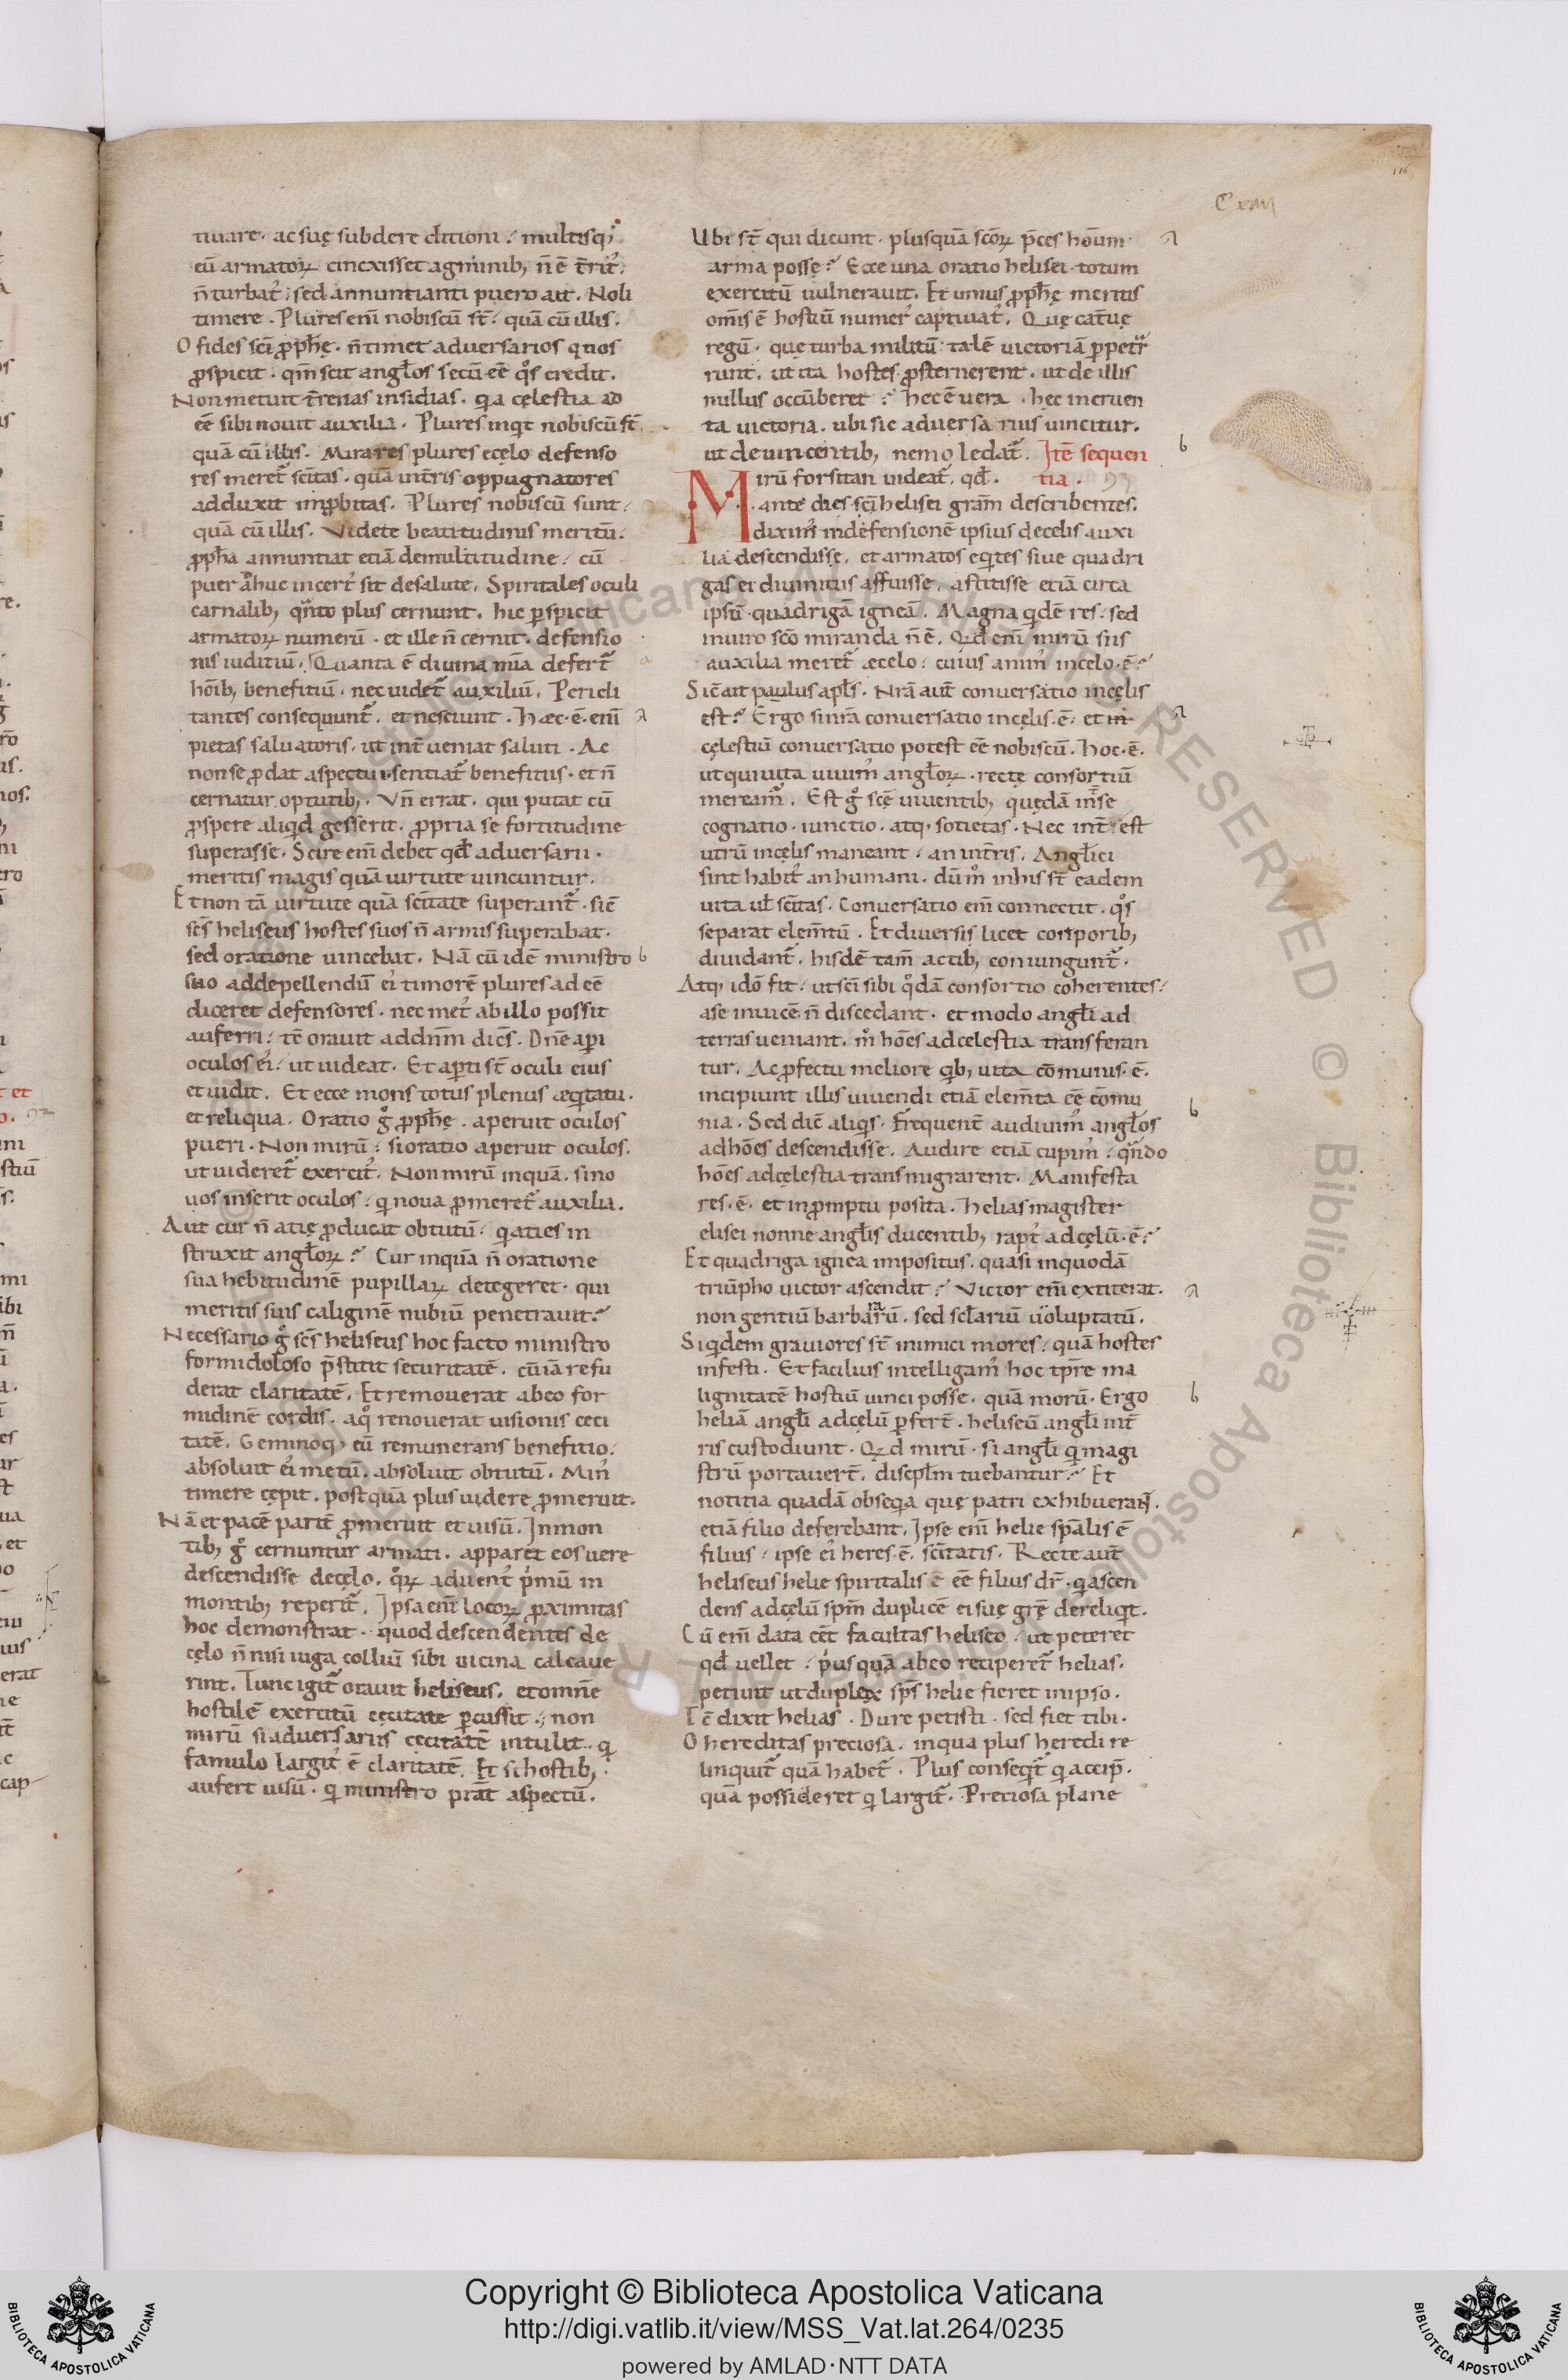 116
Cxiiii
tiuare. ac suę subdere ditioni. multisq;
eū armatoꝝ cincxisset agminib; n̄ ē t̄rit᷒.
n̄ turbat᷒. sed annuntianti puero ait. Noli
timere. Plures enī nobiscū st̄. quā cū illis.
O fides sc̄i ꝓph̄ę. n̄ timet aduersarios quos
ꝓspicit. qm̄ scit angłos secū eē qͦs credit.
Non metuit t̄renas insidias. qͥa cęlestia ad
eē sibi nouit auxilia. Plures inqͥt nobiscū st̄
quā cū illis. Mira res plures ecęlo defenso
res meret᷑ sc̄itas. quā int̄ris oppugnatores
adduxit inꝓbitas. Plures nobiscū sunt
quā cū illis. Videte beatitudinis meritū.
ꝓph̄a annuntiat etiā demultitudine. cū
puer aͩhuc incert᷒ sit desalute. Spiritales oculi
carnalib; qͣnto plus cernunt. hic ꝑspicit
armatoꝝ numerū. et ille n̄ cernit. defensio
nis iuditiū. Quanta ē diuina mīa defert᷑
hōib; benefitiū. nec uidet᷑ auxiliū. Pericli
tantes consequunt᷑. et nesciunt. Hæc.ē. enī
pietas saluatoris. ut int̄ueniat saluti. Ac
non se ꝓdat aspectui. sentiat᷑ benefitiis. et n̄
cernatur optutib;. Vn̄ errat. qui putat cū
ꝓspere aliqͥd gesserit. ꝓpria se fortitudine
superasse. Scire enī debet qđ aduersarii.
meritis magis quā uirtute uincuntur.
Et non tā uirtute quā sc̄itate superant᷑. sic̄
sc̄s heliseus hostes suos n̄ armis superabat.
sed oratione uincebat. Nā cū idē ministro
suo addepellendū ei᷒ timorē plures ad eē
diceret defensores. nec met᷒ abillo possit
auferri. tē orauit addn̄m dicēs. Dn̄e aꝑi
oculos ei᷒. ut uideat. Et aꝑti st̄ oculi eius
et uidit. Et ecce mons totus plenus æqͥtatu.
et reliqua. Oratio gͦ ꝓph̄ę. aperuit oculos
pueri. Non mirū. si oratio aperuit oculos.
ut uideret᷑ exercit᷒. Non mirū inquā. si no
uos inserit oculos. qͥ noua ꝓmeret᷑ auxilia.
Aut cur n̄ atię ꝓducat obtutū. qͥ aties in
struxit angłoꝝ? Cur inquā n̄ oratione
sua hebitudinē pupillaꝝ detegeret. qui
meritis suis caliginē nubiū penetrauit?
Necessario gͦ sc̄s heliseus hoc facto ministro
formidoloso p̄stitit securitatē. cūiā refu
derat claritatē. Et remouerat abeo for
midinē cordis. aqͦ renouerat uisionis ceci
tatē. Geminoq; eū remunerans benefitio.
absoluit ei᷒ metū. absoluit obtutū. Min᷒
timere cępit. postquā plus uidere ꝓmeruit.
Nā et pacē parit̄ ꝓmeruit et uisū. Inmon
tib; gͦ cernuntur armati. apparet eos uere
descendisse decęlo. qͦꝝ aduent᷒ pͥmū in
montib; reperit᷑. Ipsa enī locoꝝ ꝓximitas
hoc demonstrat. quod descendentes de
cęlo n̄ nisi iuga colliū sibi uicina calcaue
rint. Tunc igit᷑ orauit heliseus. et omne
hostilē exercitū cęcitate ꝑcussit. non
mirū si aduersariis cecitatē intulit. qͥ
famulo largit᷒ ē claritatē. Et si hostib;
aufert uisū. qͥ ministro p̄rat aspectū.
Ubi st̄ qui dicunt. plusquā sc̄oꝝ p̄ces hōum
arma posse? Ecce una oratio helisei totum
exercitū uulnerauit. Et unius ꝓph̄ę meritis
om̄is ē hostiū numer᷒ captiuat᷒. Quę cat̄uę
regū. quę turba militū talē uictoriā ꝑpetͣ
runt. ut ita hostes ꝓsternerent. ut de illis
nullus occūberet? hec ē uera. hęc incruen
ta uictoria. ubi sic aduersarius uincitur.
ut deuincentib; nemo ledat᷑. Itē sequen
tia.
Mirū forsitan uideat᷑. qđ.
ante dies sc̄i helisei gr̄am describentes.
dixim᷒ indefensionē ipsius decęlis auxi
lia descendisse. et armatos eqͥtes siue quadri
gas ei diuinitus affuisse. astitisse etiā circa
ipsū quadrigā igneā. Magna qͥdē res. sed
inuiro sc̄o miranda n̄ ē. Qͥd enī mirū si is
auxilia meret᷑ æcelo. cuius anim᷒ incelo.ē?
Sic̄ ait paulus apłs. Nrā aut̄ conuersatio incęlis
est? Ergo si nrā conuersatio incęlis.ē. et in
cęlestiū conuersatio potest eē nobiscū. hoc.ē.
ut qui uita uiuim᷒ angłoꝝ. recte consortiū
meream᷒. Est gͦ sc̄ę uiuentib; quędā int̄ se
cognatio. iunctio. atq; sotietas. Nec int̄est
utrū incęlis maneant. an int̄ris. Anglici
sint habit᷒ an humani. dūmͦ inhis st̄ eadem
uita uł sc̄itas. Conuersatio enī connectit. qͦs
separat elem̄tū. Et diuersis licet corporib;
diuidant᷑. hisdē tam̄ actib; coniungunt᷑.
Atq; idō fit. ut sc̄i sibi qͦdā consortio coherentes.
ase inuicē n̄ discedant. et modo angli ad
terras ueniant. mͦ hōes adcelestia transferan
tur. Ac ꝓfectu meliore qͥb; uita cōmunis.ē.
incipiunt illis uiuendi etiā elem̄ta eē cōmu
nia. Sed dic̄ aliqͥs. Frequent̄ audiuim᷒ angłos
adhōes descendisse. Audire etiā cupim᷒. qͣndo
hōes adcęlestia transmigrarent. Manifesta
res.ē. et inꝓmptu posita. helias magister
elisei nonne angłis ducentib; rapt᷒ adcęlū.ē?
Et quadriga ignea impositus. quasi inquodā
triūpho uictor ascendit? Victor enī extiterat.
non gentiū barbararū. sed scłariū uoluptatū.
Siqͥdem grauiores st̄ inimici mores. quā hostes
infesti. Et facilius intelligam᷒ hoc tp̄re ma
lignitatē hostiū uinci posse. quā morū. Ergo
heliā angłi adcęlū ꝑfert̄. heliseū angłi int̄
ris custodiunt. Qͥd mirū. si angłi qͥ magi
strū portauer̄t. discpłm tuebantur? Et
notitia quadā obseqͥa quę patri exhibuerant.
etiā filio deferebant. Ipse enī helie sp̄alis ē
filius. ipse ei᷒ heres.ē. sc̄itatis. Recte aut̄
heliseus helie spiritalis ē eē filius dr̄. qͥa ascen
dens adcęlū sp̄m duplicē ei suę gr̄ę dereliqͥt.
Cū enī data eēt facultas heliseo. ut peteret
qđ uellet. pͥusquā abeo reciperet᷑ helias.
petiuit ut duplex sp̄s helie fieret inipso.
Tē dixit helias. Dure petisti. sed fiet tibi.
O hereditas preciosa. inqua plus heredi re
linquit᷑ quā habet᷑. Plus conseqͥt᷑ qͥ accip̄.
quā possideret qͥ largit᷑. Preciosa plane
Copyright © Biblioteca Apostolica Vaticana
http://digi.vatlib.it/view/MSS_Vat.lat.264/0235
powered by AMLAD·NTT DATA